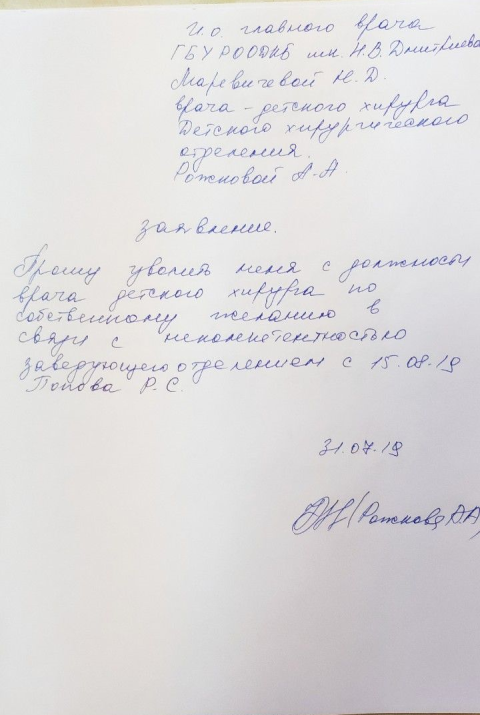 И.о. главного врача
ГБУ РО ОДКБ им. Н.В. Дмитриева
Маревичевой Н.Д.
врача - детского хирурга
Детского хирургического
отделения.
Рожновой А.А.
заявление.
Прошу уволить меня с должности
врача детского хирурга по
собственному желанию в
связи с некомпетентностью
заведующего отделением с 15.08.19
Попова Р.С.
31.07.19
(Рожнова А.А)